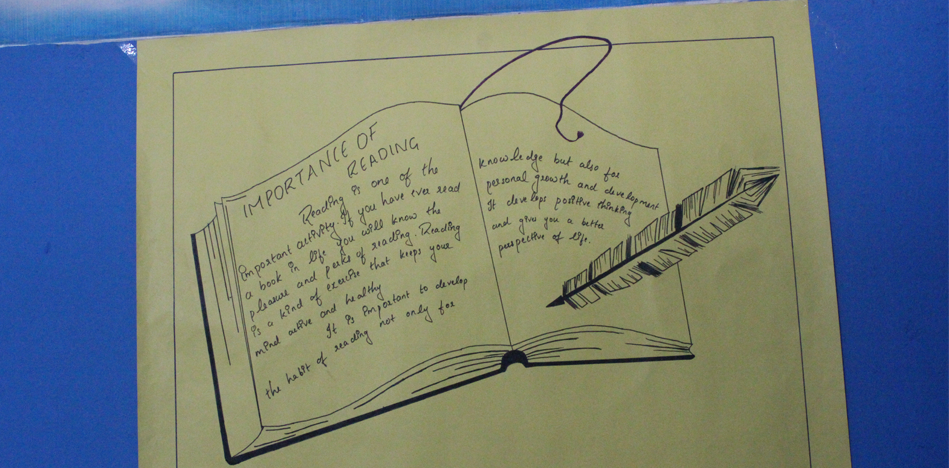 IMPORTANCE OF
READING
Reading is one of the
important activity. If you have ever read
a book in life you will know the
pleasure and perks of reading. Reading
is a kind of exercise that keeps your
mind active and healthy
It is important to develop
the habit of reading not only for
knowledge but also for
personal growth and development
It develops positive thinking
and give you a better
perspective of life.